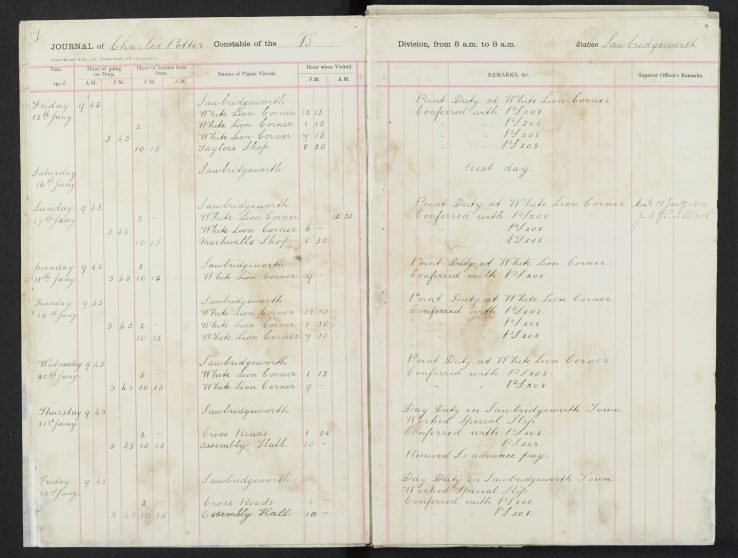 JOURNAL of Charles Potter. Constable of the "B" Division, from 8 a.m. to 8 a.m. Station Sawbridgeworth
Date Hour of going on Duty. Hour of Return from Duty. Names of Places Visited. Hour when Visited. REMARKS, &c. Superior Officer's Remarks.
A.M. P.M. A.M. P.M. P.M. A.M.
Friday 9 45 Sawbridgeworth Point Duty at White Lion Corner
15th Jany White Lion Corner 12 15 Conferred with PS 208
2 - White Lion Corner 1 15 " " PS 208
5 45 White Lion Corner 7 15 " " PS 208
10 15 Taylors Shop 8 30 " " PS 208
Saturday Sawbridgeworth Rest day.
16th Jany
Sunday 9 45 Sawbridgeworth Point Duty at White Lion Corner
17th Jany 2 - White Lion Corner 12 30 Conferred with PS 208
5 45 White Lion Corner 6 - " " PS 208
10 15 Markwells Shop 8 30 " " PS 208
Monday 9 45 2 Sawbridgeworth Point Duty at White Lion Corner
18th Jany 5 45 10 15 White Lion Corner 9 - Conferred with PS 208
Tuesday 9 45 Sawbridgeworth Point Duty at White Lion Corner
19th Jany White Lion Corner 12 30 Conferred with PS 208
5 45 2 - White Lion Corner 1 30 " " PS 208
10 15 White Lion Corner 7 30 " " PS 208
Wednesday 9 45 Sawbridgeworth Point Duty at White Lion Corner
20th Jany. 2 - White Lion Corner 1 15 Conferred with PS 208.
5 45 10 15 White Lion Corner 9 - " " PS 208
Thursday 9 45 Sawbridgeworth Day Duty in Sawbridgeworth Town
21st Jany Worked Special Slip
2 - Cross Roads 1 30 Conferred with PS 208
5 45 10 15 Assembly Hall. 10 - " " PS 208
Received £1 advance pay.
Friday 9 45 Sawbridgeworth Day Duty in Sawbridgeworth Town.
22nd Jany. Worked Special Slip
2 - Cross Roads 1 - Conferred with PS 208
5 45 10 15 Assembly Hall 10 - " " PS 208